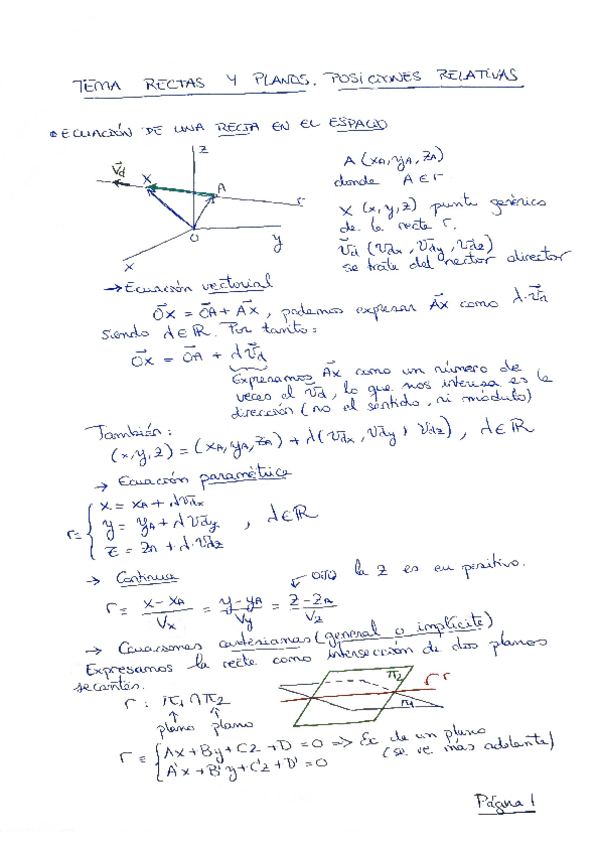 TEMA RECTAS Y PLANOS. POSICIONES RELATIVAS
ECUACIÓN DE UNA RECTA EN EL ESPACIO
z
V⃗d
X
A
r
O
y
x
A (xA, yA, zA)
donde A ∈ r
X (x, y, z) punto genérico
de la recta r.
v⃗d (vdx, vdy, vdz)
se trata del vector director
→ Ecuación vectorial
OX⃗ = OA⃗ + AX⃗, podemos expresar AX⃗ como λ·v⃗d
siendo λ ∈ ℝ. Por tanto:
OX⃗ = OA⃗ + λv⃗d
Expresamos AX⃗ como un número de
veces el v⃗d, lo que nos interesa es la
dirección (no el sentido, ni módulo)
También:
(x,y,z) = (xA, yA, zA) + λ(vdx, vdy, vdz), λ∈ℝ
→ Ecuación paramétrica
x = xA + λvdx
r≡ { y = yA + λvdy , λ∈ℝ
z = zA + λ·vdz
→ Continua
ojo la z es en positivo.
r ≡ x - xA / Vx = y - yA / Vy = z - zA / Vz
→ Ecuaciones cartesianas (general o implícita)
Expresamos la recta como intersección de dos planos
secantes.
r : π1 ∩ π2
plano plano
π2
r
π1
r ≡ { Ax + By + Cz + D = 0 ⇒ Ec de un plano
A'x + B'y + C'z + D' = 0 (se ve más adelante)
Página 1